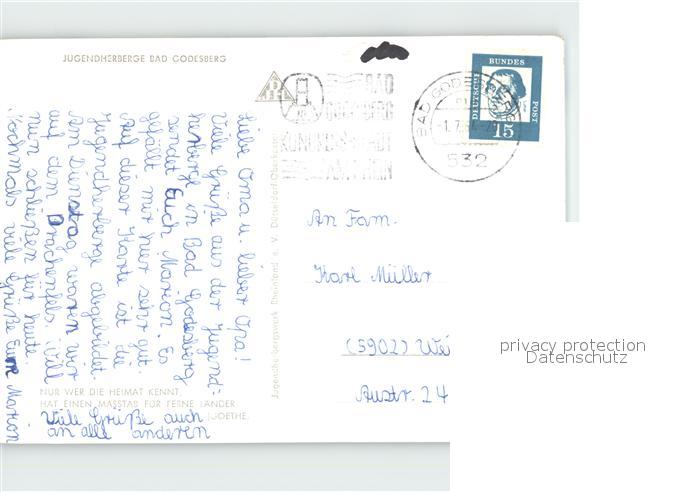 JUGENDHERBERGE BAD GODESBERG
BAD
GODESBERG
AM RHEIN
BAD GODE
532
DEUTSCHE BUNDES POST
15
Liebe Oma u. lieber Opa!
Viele Grüße aus der Jugend-
herberge in Bad Godesberg
sendet Euch Marion. Es
gefällt mir hier sehr gut.
Auf dieser Karte ist die
Jugendherberge abgebildet.
Am Dienstag waren wir
auf dem Drachenfels. Will
nun schließen für heute
Nochmals viele Grüße Eure Marion
Viele Grüße auch
an alle anderen
NUR WER DIE HEIMAT KENNT,
HAT EINEN MASSTAB FÜR FERNE LÄNDER
GOETHE
Rheinland e. V. Düsseldorf-Oberkassel
An Fam.
Karl Müller
(5902) Wei
Austr. 24
privacy protection
Datenschutz